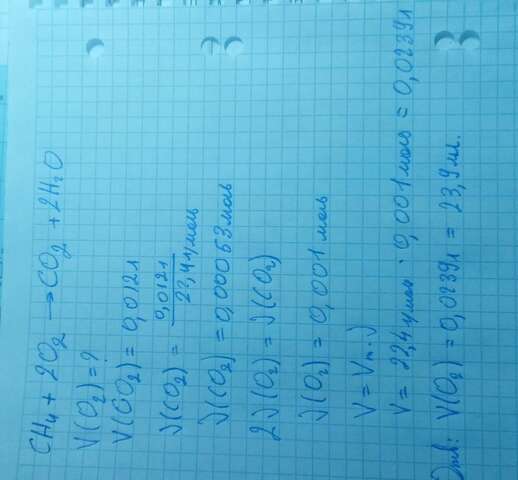 CH₄ + 2O₂ → CO₂ + 2H₂O
V(O₂) = ?
V(CO₂) = 0,012л
ν(CO₂) = 0,012л / 22,4л/моль
ν(CO₂) = 0,00053моль
2ν(O₂) = ν(CO₂)
ν(O₂) = 0,001моль
V = Vm · ν
V = 22,4л/моль · 0,001моль = 0,0239л
Отв: V(O₂) = 0,0239л = 23,9мл.